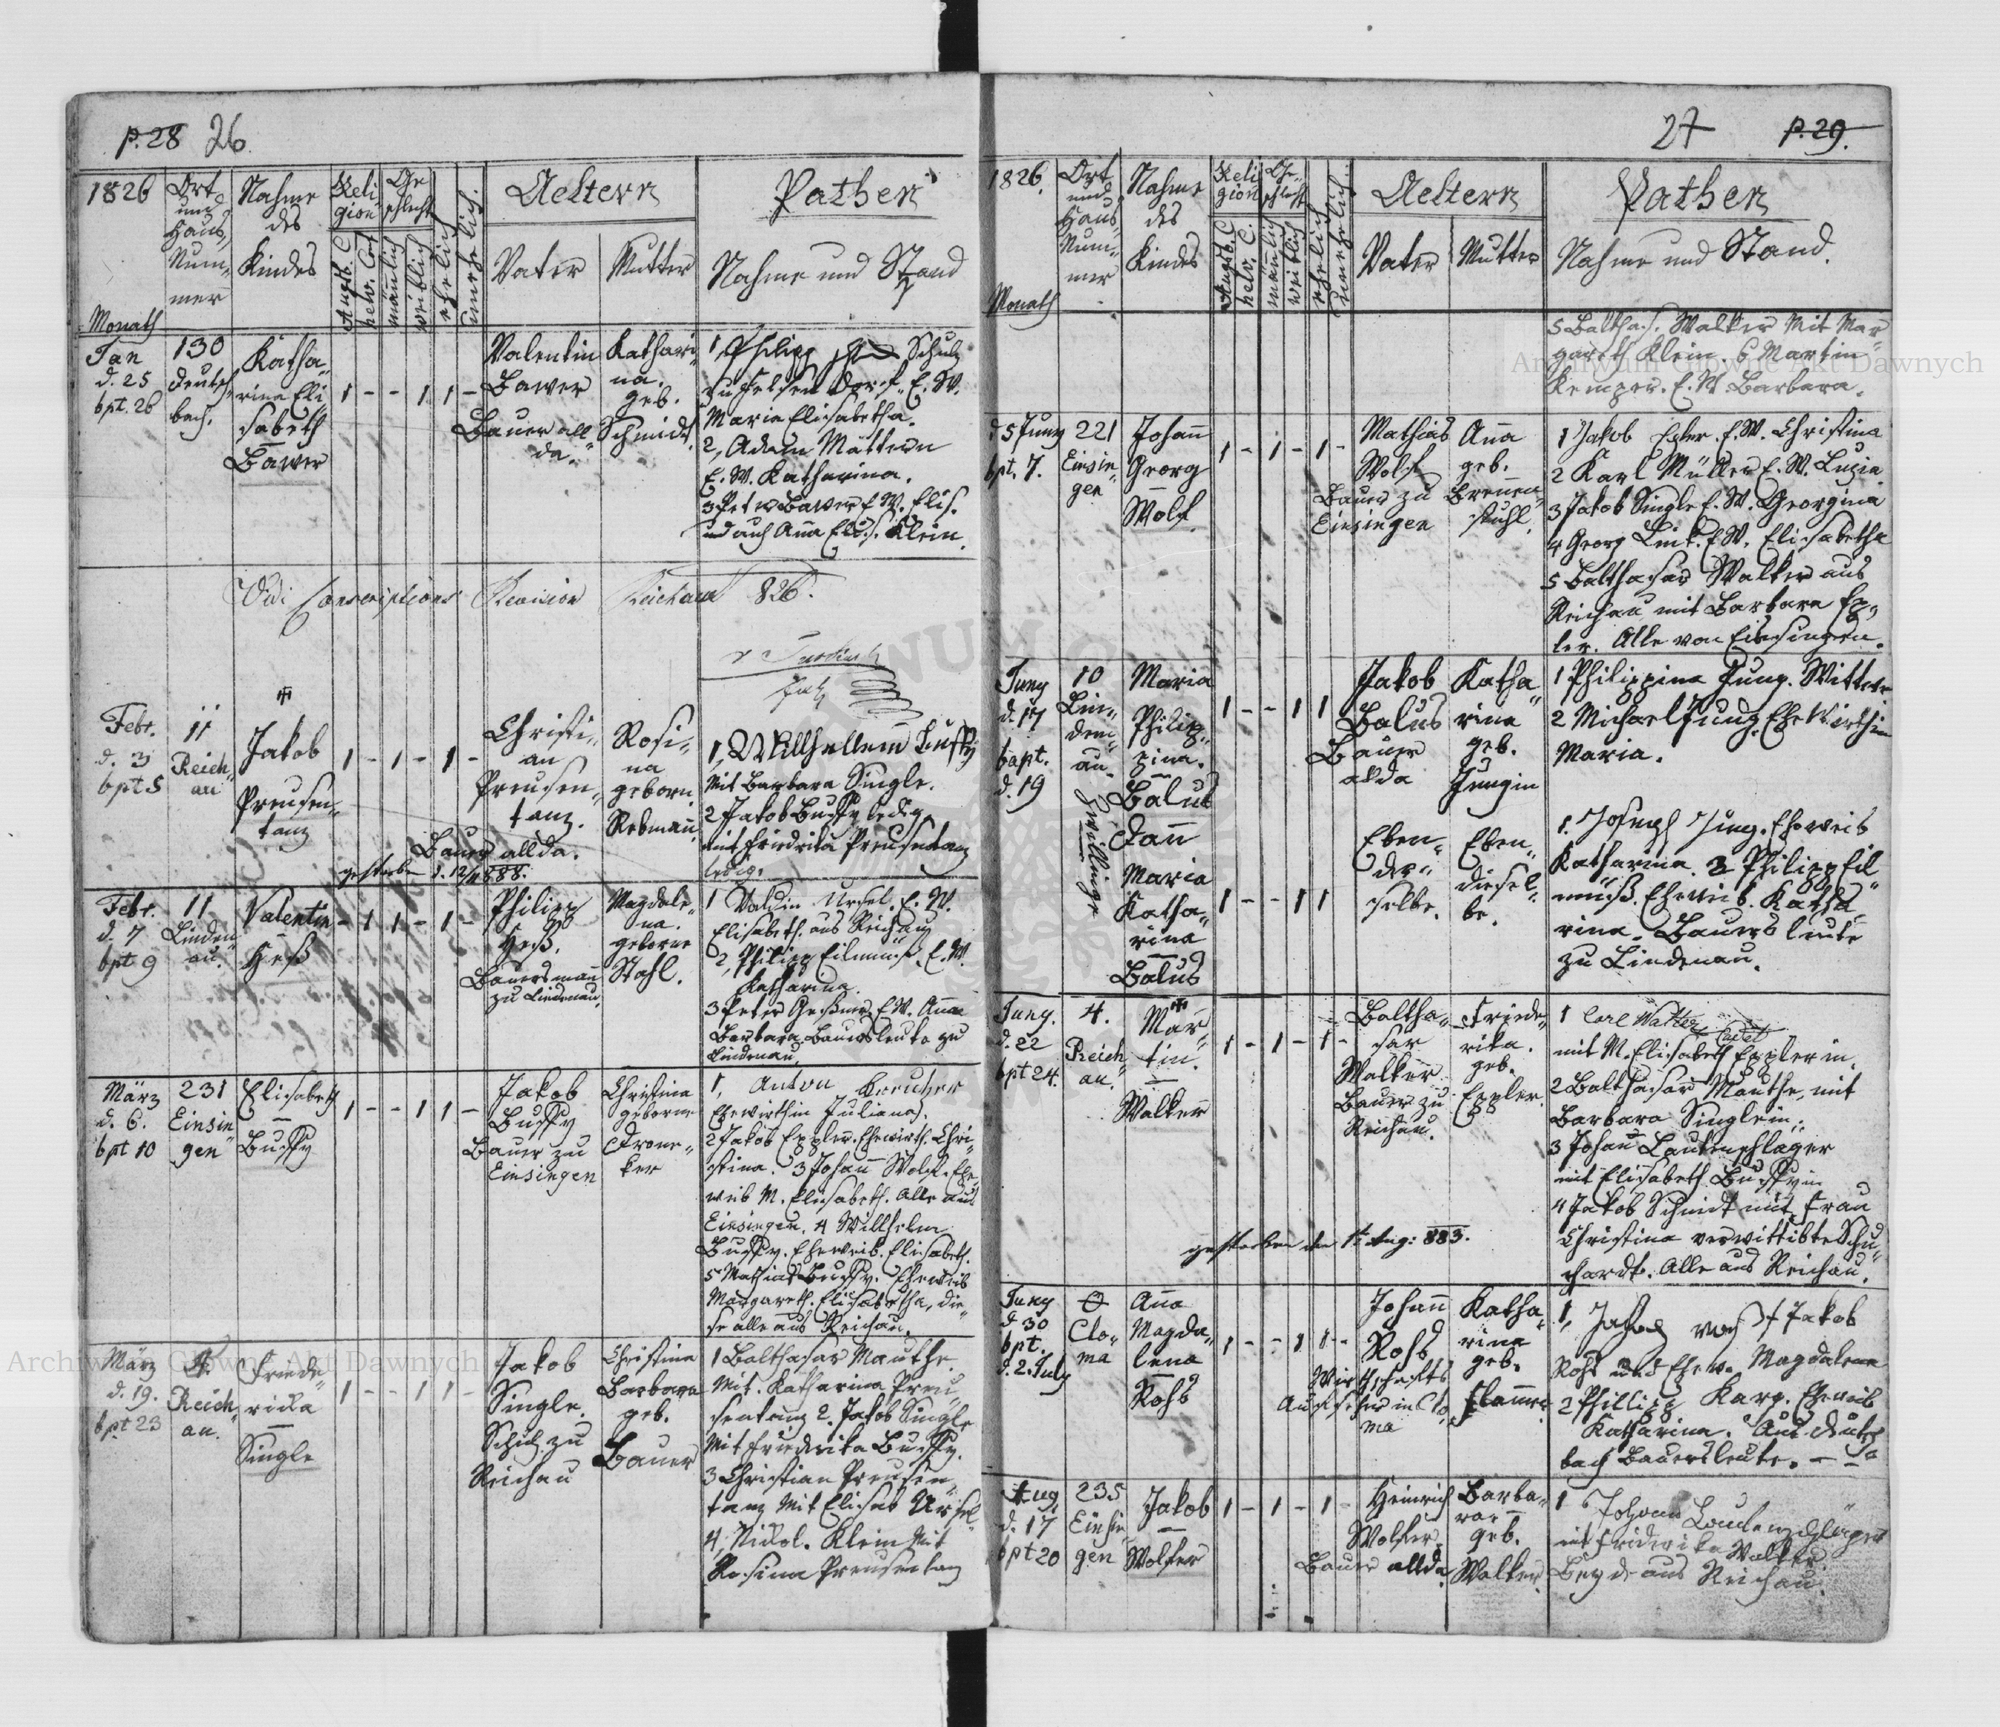 p. 28 26
1826
Ort und Haus Num- mer
Nahme des Kindes
Reli gion
Ge schlecht
Augsb. C
helv. Conf
männlich
weiblich
ehelich
unehelich
Aeltern
Vater
Mutter
Pathen
Nahme und Stand
Monath
Jan
d. 25
bpt. 26
130
deutsch-
bach.
Katha-
rina Eli
sabeth
Bawer
1 - - 1 1 -
Valentin
Bawer
Bauer all-
da.
Kathari-
na.
geb.
Schmidt.
1, Philipp Schulz
zu Felsendorf. E. W.
Maria Elisabetha.
2, Adam Mattern
E. W. Katharina.
3 Peter Bawer E. W. Elis.
und auch Aña Elis. Klein.
Vidi Conscriptions Revision Reichau 826.
Febr.
d. 3
bpt 5
11
Reich-
au
Jakob
Preusen-
tanz
1 - 1 - 1 -
Christi-
an
Preusen-
tanz.
Bauer allda.
Rosi-
na
geborn.
Rebmañ
gestorben d. 12/4 888.
1, Willhellem Bussy
Mit Barbara Single.
2 Jakob Bussy ledig
mit Friedrika Preusentanz
ledig.
Febr.
d. 7
bpt 9
11
Linden-
au.
Valentin
Heß
- 1 1 - 1 -
Philipp
Heß.
Bauersmañ
zu Lindenau.
Magdale-
na.
geborne
Stahl.
1 Valtin Ursel. E. W.
Elisabeth. aus Reichau
2, Philipp Eilmus. E. W.
Katharina.
3 Peter E. W. Anna
Barbara Bauersleute zu
Lindenau.
März
d. 6.
bpt 10
231
Einsin
gen
Elisabeth
Bussy
1 - - 1 1 -
Jakob
Bussy
Bauer zu
Einsingen
Christina
geborne
Krone-
ker
1, Anton Kreutzer
Ehewirthin Juliana.
2 Jakob Eppler. Ehewirth. Chri-
stina. 3 Johañ Wolf. Ehe-
weib M. Elisabeth. Alle aus
Einsingen. 4 Willhelm
Bussy. Eheweib. Elisabeth.
5 Mathias Bussy. Eheweib
Margareth. Elisabetha, die-
se alle aus Reichau.
März
d. 19.
bpt 23
4
Reich-
au.
Friede-
rika
Single
1 - - 1 1 -
Jakob
Single.
Schulz zu
Reichau
Christina
Barbara
geb.
Bauer
1 Balthasar Mauthe.
Mit. Katharina Preu-
sentanz 2. Jakob Single
Mit Friedrika Bussy.
3 Christian Preusen-
tanz Mit Elisab Ursel-
4, Nikol. Klein Mit
Rosina Preusentanz
27 p. 29.
1826.
Ort und Haus Num- mer
Nahme des Kindes
Reli gion
Ge- schlecht
Augsb. C
helv. C.
mañlich
weiblich
ehelich
unehelich.
Aeltern
Vater
Mutter
Pathen
Nahme und Stand.
Monath
5 Balthas. Walker Mit Mar-
gareth Klein. 6 Martin
Kemper. E. W Barbara.
d 5 Juny
bpt. 7.
221
Einsin-
gen
Johañ
Georg
Wolf.
1 - 1 - 1 -
Mathias
Wolf
Bauer zu
Einsingen
Aña
geb.
Breñen-
stuhl.
1 Jakob Epler. E. W. Christina
2 Karl Müller E. W. Luzia
3 Jakob Single E. W. Georgina
4 Georg Link. E. W. Elisabetha
5 Balthasar Walker aus
Reichau mit Barbara Ep-
ler. Alle von Einsingen.
Juny
d. 17
bapt.
d. 19
10
Lin-
den-
au.
Zwillinge
Maria
Philip-
pina.
Balus
Dañ
Maria
Katha-
rina
Balus
1 - - 1 1
Jakob
Balus
Bauer
allda
Katha-
rina
geb.
Jungin
1 Philippina Jung. Wittwe
2 Michael Jung. Ehewirthin
Maria.
1 - - 1 1
Eben-
der-
selbe.
Eben-
diesel-
be.
1. Joseph Jung. Eheweib
Katharina. 2 Philipp Eil-
muß. Eheweib. Katha-
rina. Bauers leute
zu Lindenau.
Juny.
d. 22
bpt 24.
4.
Reich-
au.
Mar-
tin.
Walker
1 - 1 - 1 -
Baltha-
sar
Walker
Bauer zu
Reichau.
Friede-
rika.
geb.
Eppler.
1 Carl Walter
mit M. Elisabeth Epplerin.
2 Balthasar Mauthe, mit
Barbara Singlein.
3 Johañ Lautenschlager
mit Elisabeth Bussyin
4 Jakob Schmidt mit Frau
Christina verwittibte Schu-
chardt. Alle aus Reichau.
gestorben den 1t Aug: 883.
Juny
d 30
bpt.
d. 2. July
0
Clo-
ma
Aña
Magda-
lena
Rohs
1 - - 1 1 -
Johañ
Rohs
Wirthschafts
Aufseher in Clo-
ma
Katha-
rina
geb.
1, Jakob
Rohs und Ehew. Magdalena
2 Phillipp Karg. Eheweib
Katharina. Aus deutsch-
bach Bauersleute.
Aug.
d. 17
bpt 20
235
Einsin-
gen
Jakob
Wolfer
1 - 1 - 1 -
Heinrich
Wolfer.
Bauer allda
Barba-
ra
geb.
Walker.
1 Johann Lautenschläger
mit Friderika Walker
Beyde aus Reichau.